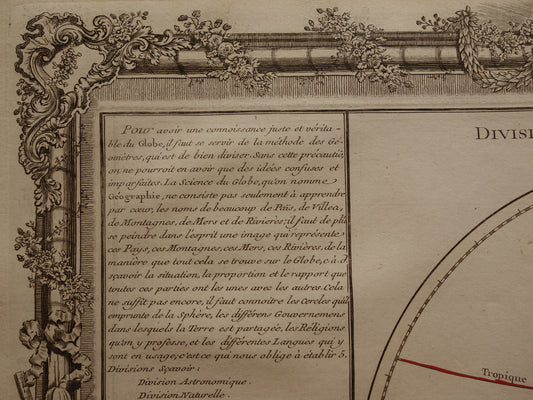 POUR avoir une connoissance juste et vérita-
ble du Globe, il faut se servir de la méthode des Gé-
omètres, qui est de bien diviser. Sans cette précautiō,
on ne pourroit en avoir que des idées confuses et
imparfaites. La Science du Globe, qu'on nomme
Géographie, ne consiste pas seulement à apprendre
par cœur, les noms de beaucoup de Païs, de Villes,
de Montagnes, de Mers et de Rivieres; il faut de plus
se peindre dans l'esprit une image qui représente
ces Pays, ces Montagnes, ces Mers, ces Rivières, de la
manière que tout cela se trouve sur le Globe, c'à d.
sçavoir la situation, la proportion et le rapport que
toutes ces parties ont les unes avec les autres. Cela
ne suffit pas encore, il faut connoitre les Cercles qu'il
emprunte de la Sphère, les différens Gouvernemens
dans lesquels la Terre est partagée, les Réligions
qu'on y professe, et les différentes Langues qui y
sont en usage; c'est ce qui nous oblige à établir 5.
Divisions Sçavoir:
Division Astronomique.
Division Naturelle.
DIVISI
Tropique